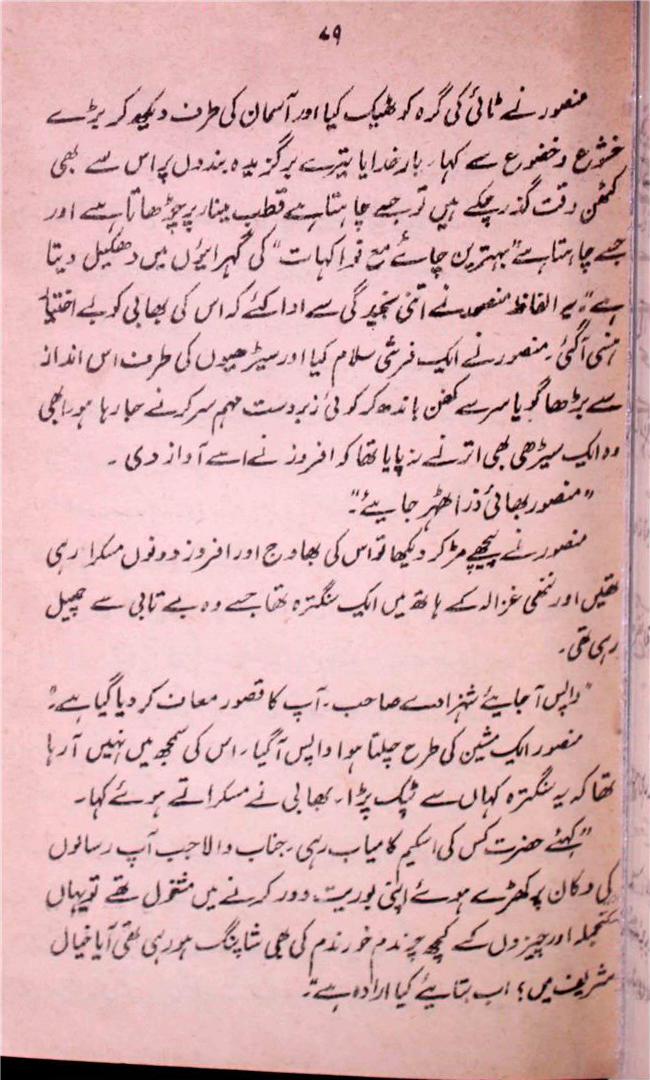 ۷۹
منصور نے ٹائی کی گرہ کو ٹھیک کیا اور آسمان کی طرف دیکھ کر بڑے
خشوع و خضوع سے کہا۔ بار خدایا تیرے برگزیدہ بندوں پر اس سے بھی
کٹھن وقت گذر چکے ہیں تو جسے چاہتا ہے قطب مینار پر چڑھاتا ہے اور
جسے چاہتا ہے "بہترین چائے مع فواکہات" کی گہرائیوں میں دھکیل دیتا
ہے"۔ یہ الفاظ منصور نے اتنی سنجیدگی سے ادا کئے کہ اس کی بھابی کو بے اختیار
ہنسی آ گئی۔ منصور نے ایک فرشی سلام کیا اور سیڑھیوں کی طرف اس انداز
سے بڑھا گویا سر سے کفن باندھ کر کوئی زبردست مہم سر کرنے جا رہا ہو۔ ابھی
وہ ایک سیڑھی بھی اترنے نہ پایا تھا کہ افروز نے اسے آواز دی۔
"منصور بھائی ذرا ٹھہر جایئے"۔
منصور نے پیچھے مڑ کر دیکھا تو اس کی بھاوج اور افروز دونوں مسکرا رہی
تھیں اور ننھی غزالہ کے ہاتھ میں ایک سنگترہ تھا جسے وہ بے تابی سے چھیل
رہی تھی۔
"واپس آ جایئے شہزادے صاحب۔ آپ کا قصور معاف کر دیا گیا ہے۔"
منصور ایک مشین کی طرح چلتا ہوا واپس آ گیا۔ اس کی سمجھ میں نہیں آ رہا
تھا کہ یہ سنگترہ کہاں سے ٹپک پڑا۔ بھابی نے مسکراتے ہوئے کہا۔
"کہئے حضرت کس کی اسکیم کامیاب رہی۔ جناب والا جب آپ رسالوں
کی دکان پر کھڑے ہوئے اپنی بوریت دور کرنے میں مشغول تھے تو یہاں
منجملہ اور چیزوں کے کچھ چرندم خورندم کی بھی شاپنگ ہو رہی تھی آیا خیال
شریف میں؟ اب بتایئے کیا ارادہ ہے"۔